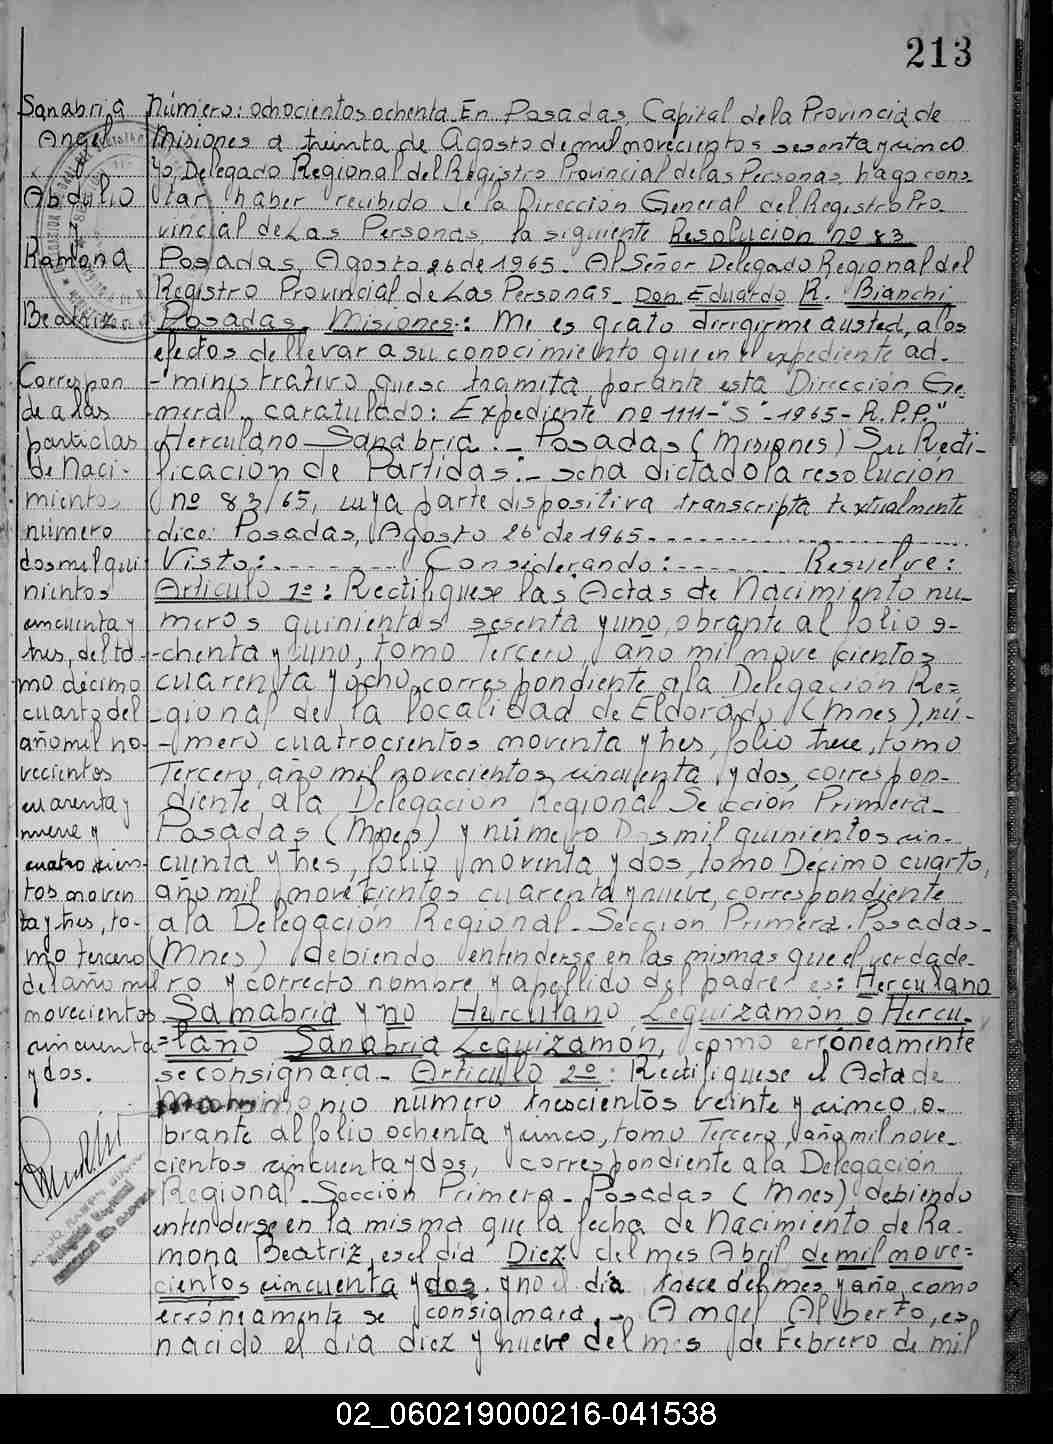 213
Sanabria
Angel
y
Abdulio
Ramona
Beatriz
Correspon
de a las
partidas
de Naci-
mientos
número
dos mil qui
nientos
cincuenta y
tres, del to-
mo décimo
cuarto del
año mil no-
vecientos
cuarenta y
nueve y
cuatro cien-
tos noven
ta y tres, to-
mo tercero
del año mil
novecientos
cincuenta
y dos.
Número: ochocientos ochenta. En Posadas, Capital de la Provincia de
Misiones a treinta de Agosto de mil novecientos sesenta y cinco
Yo, Delegado Regional del Registro Provincial de las Personas, hago cons-
tar haber recibido de la Dirección General del Registro Pro-
vincial de Las Personas la siguiente Resolucion nº 83
Posadas, Agosto 26 de 1965. Al Señor Delegado Regional del
Registro Provincial de Las Personas_ Don Eduardo R. Bianchi
Posadas, Misiones: Me es grato dirigirme a usted, a los
efectos de llevar a su conocimiento que en el expediente ad-
-ministrativo que se tramita por ante esta Dirección Ge-
neral, caratulado: Expediente nº 1111-"S"-1965- R.P.P."
Herculano Sanabria._ Posadas (Misiones) Su Recti-
ficacion de Partidas:_ se ha dictado la resolución
nº 83/65, cuya parte dispositiva transcripta textualmente
dice: Posadas, Agosto 26 de 1965
Visto: Considerando: Resuelve:
Articulo 1º: Rectifiquese las Actas de Nacimiento nú-
meros quinientos sesenta y uno, obrante al folio o-
-chenta y uno, tomo Tercero, año mil nove cientos
cuarenta y ocho, correspondiente a la Delegación Re=
-gional de la localidad de Eldorado (Mnes), nú-
-mero cuatrocientos noventa y tres, folio trece, tomo
Tercero, año mil novecientos cincuenta y dos, correspon-
diente a la Delegación Regional Sección Primera_
Posadas (Mnes) y número Dos mil quinientos cin-
cuenta y tres, folio noventa y dos, tomo Decimo cuarto,
año mil novecientos cuarenta y nueve, correspondiente
a la Delegación Regional_Sección Primera. Posadas_
(Mnes) debiendo entenderse en las mismas que el verdade-
ro y correcto nombre y apellido del padre es: Herculano
Sanabria y no Herculano Leguizamón o Hercu-
=lano Sanabria Leguizamón, como erróneamente
se consignara_ Articulo 2º: Rectifiquese el Acta de
Matrimonio número trescientos veinte y cinco, o-
brante al folio ochenta y cinco, tomo Tercero, año mil nove_
cientos cincuenta y dos, correspondiente a la Delegación
Regional_Sección Primera_ Posadas (Mnes) debiendo
entenderse en la misma que la fecha de Nacimiento de Ra-
mona Beatriz, es el día Diez del mes Abril de mil nove=
cientos cincuenta y dos. y no el día trece del mes y año, como
erróneamente se consignara._ Angel Alberto, es
nacido el día diez y nueve del mes de Febrero de mil
02_060219000216-041538